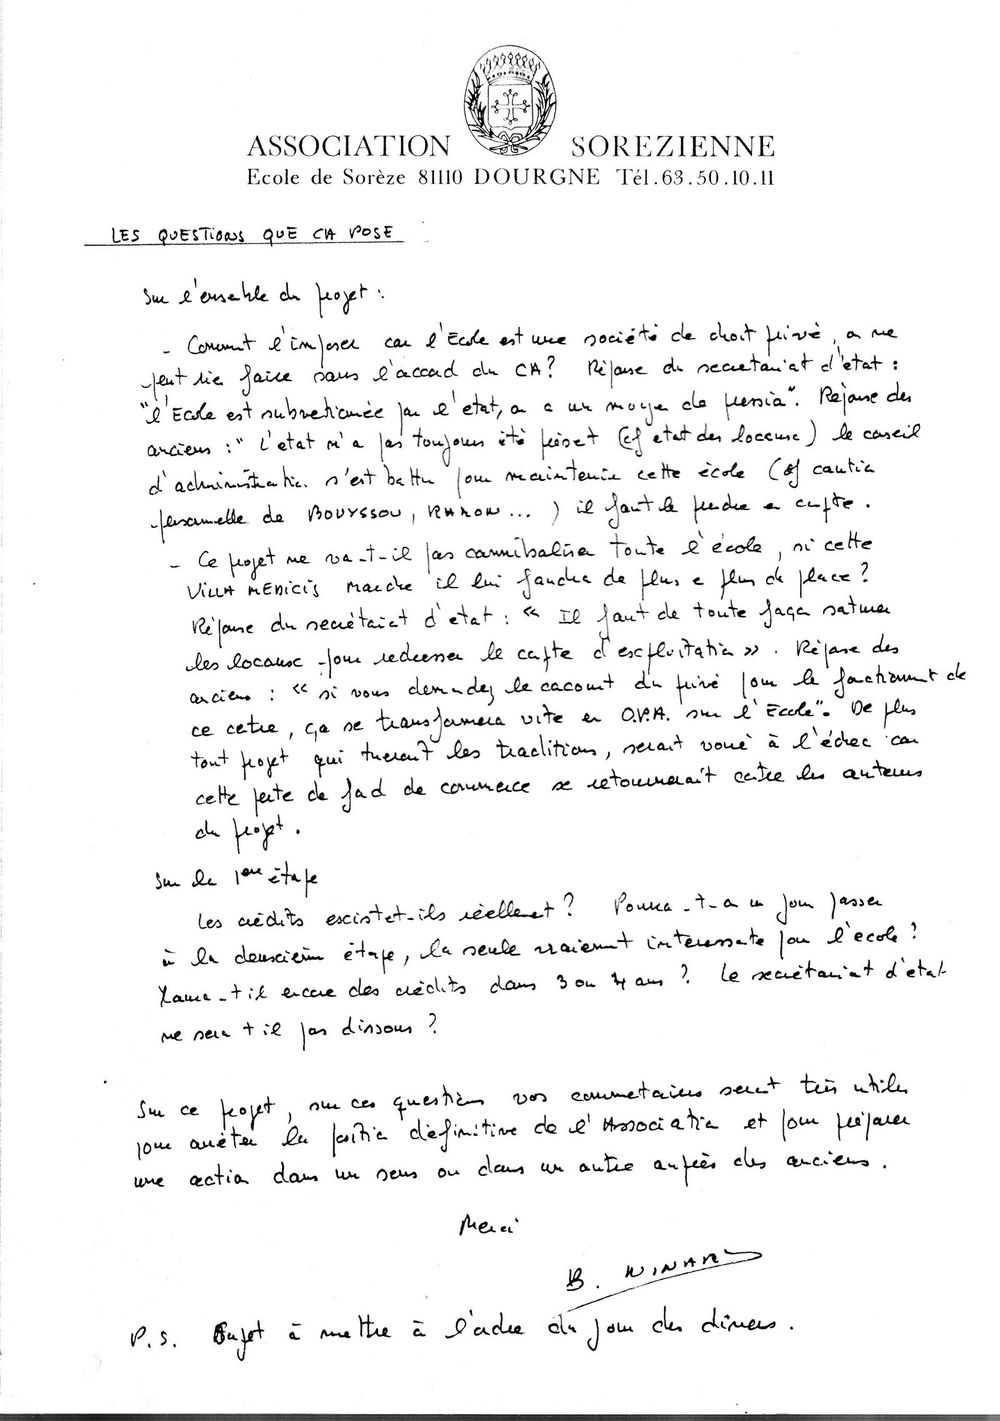 ASSOCIATION SOREZIENNE
Ecole de Sorèze 81110 DOURGNE Tél.63.50.10.11
LES QUESTIONS QUE CA POSE
Sur l'ensemble du projet :
- Comment l'imposer car l'Ecole est une société de droit privé, on ne
peut rien faire sans l'accord du CA ? Réponse du secretariat d'état :
"l'Ecole est subventionnée par l'état, on a un moyen de pression". Réponse des
anciens : "L'état n'a pas toujours été présent (cf état des locaux) le conseil
d'administration s'est battu pour maintenir cette école (cf caution
personnelle de BOUYSSOU, RAMON ...) il faut le prendre en compte.
- Ce projet ne va-t-il pas cannibaliser toute l'école, si cette
VILLA MEDICIS marche il lui faudra de plus en plus de place ?
Réponse du secrétariat d'état : « Il faut de toute façon saturer
les locaux pour redresser le compte d'exploitation ». Réponse des
anciens : « si vous demandez le concours du privé pour le fonctionnement de
ce centre, ça se transformera vite en O.P.A. sur l'Ecole". De plus
tout projet qui tuerait les traditions, serait voué à l'échec car
cette perte de fond de commerce se retournerait contre les auteurs
du projet.
Sur la 1ère étape
Les crédits existent-ils réellement ? Pourra-t-on un jour passer
à la deuxième étape, la seule vraiment intéressante pour l'école ?
Y aura-t-il encore des crédits dans 3 ou 4 ans ? Le secrétariat d'état
ne sera t il pas dissous ?
Sur ce projet, sur ces questions vos commentaires seront très utiles
pour arrêter la position définitive de l'Association et pour préparer
une action dans un sens ou dans un autre auprès des anciens.
Merci
B.
P.S. Sujet à mettre à l'ordre du jour des dîners.